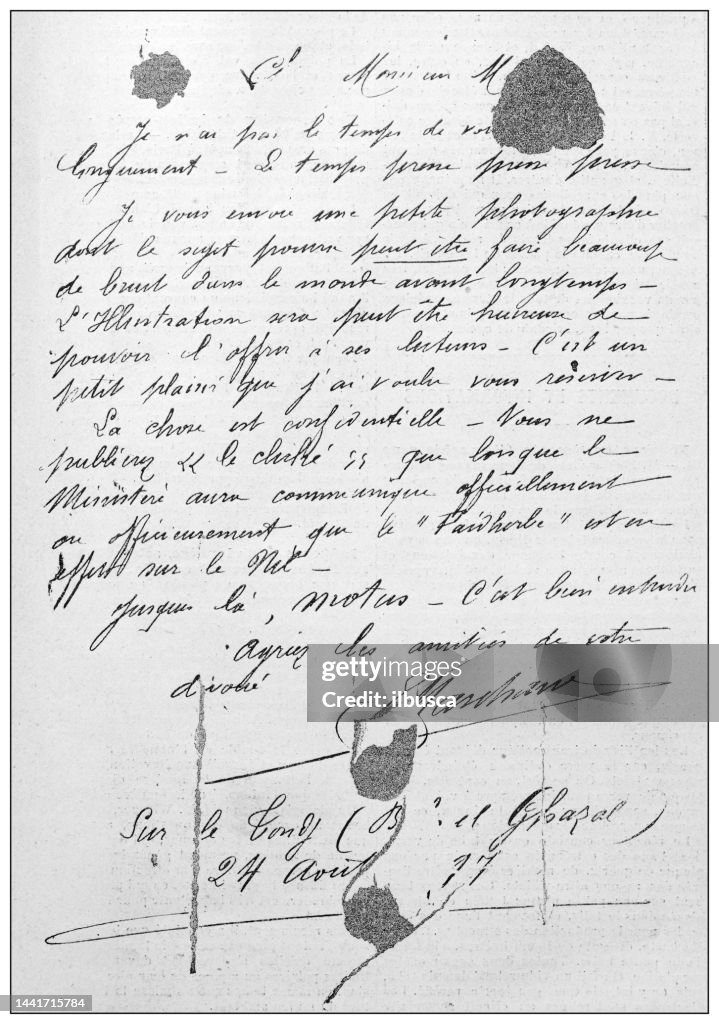 Cl Monsieur M
Je n'ai pas le temps de vou
longuement – Le temps presse presse presse
Je vous envoie une petite photographie
dont le sujet pourra peut être faire beaucoup
de bruit dans le monde avant longtemps –
L'Illustration sera peut être heureuse de
pouvoir l'offrir à ses lecteurs – C'est un
petit plaisir que j'ai voulu vous réserver –
La chose est confidentielle – Vous ne
publierez « le cliché » que lorsque le
Ministère aura communiqué officiellement
ou officieusement que le "Faidherbe" est en
effet sur le Nil –
Jusque là, motus – C'est bien entendu
Agréez les amitiés de votre
dévoué
Marchand
Sur le Tondj (B? el Ghazal)
24 Avril ?7
gettyimages
Credit: ilbusca
1441715784